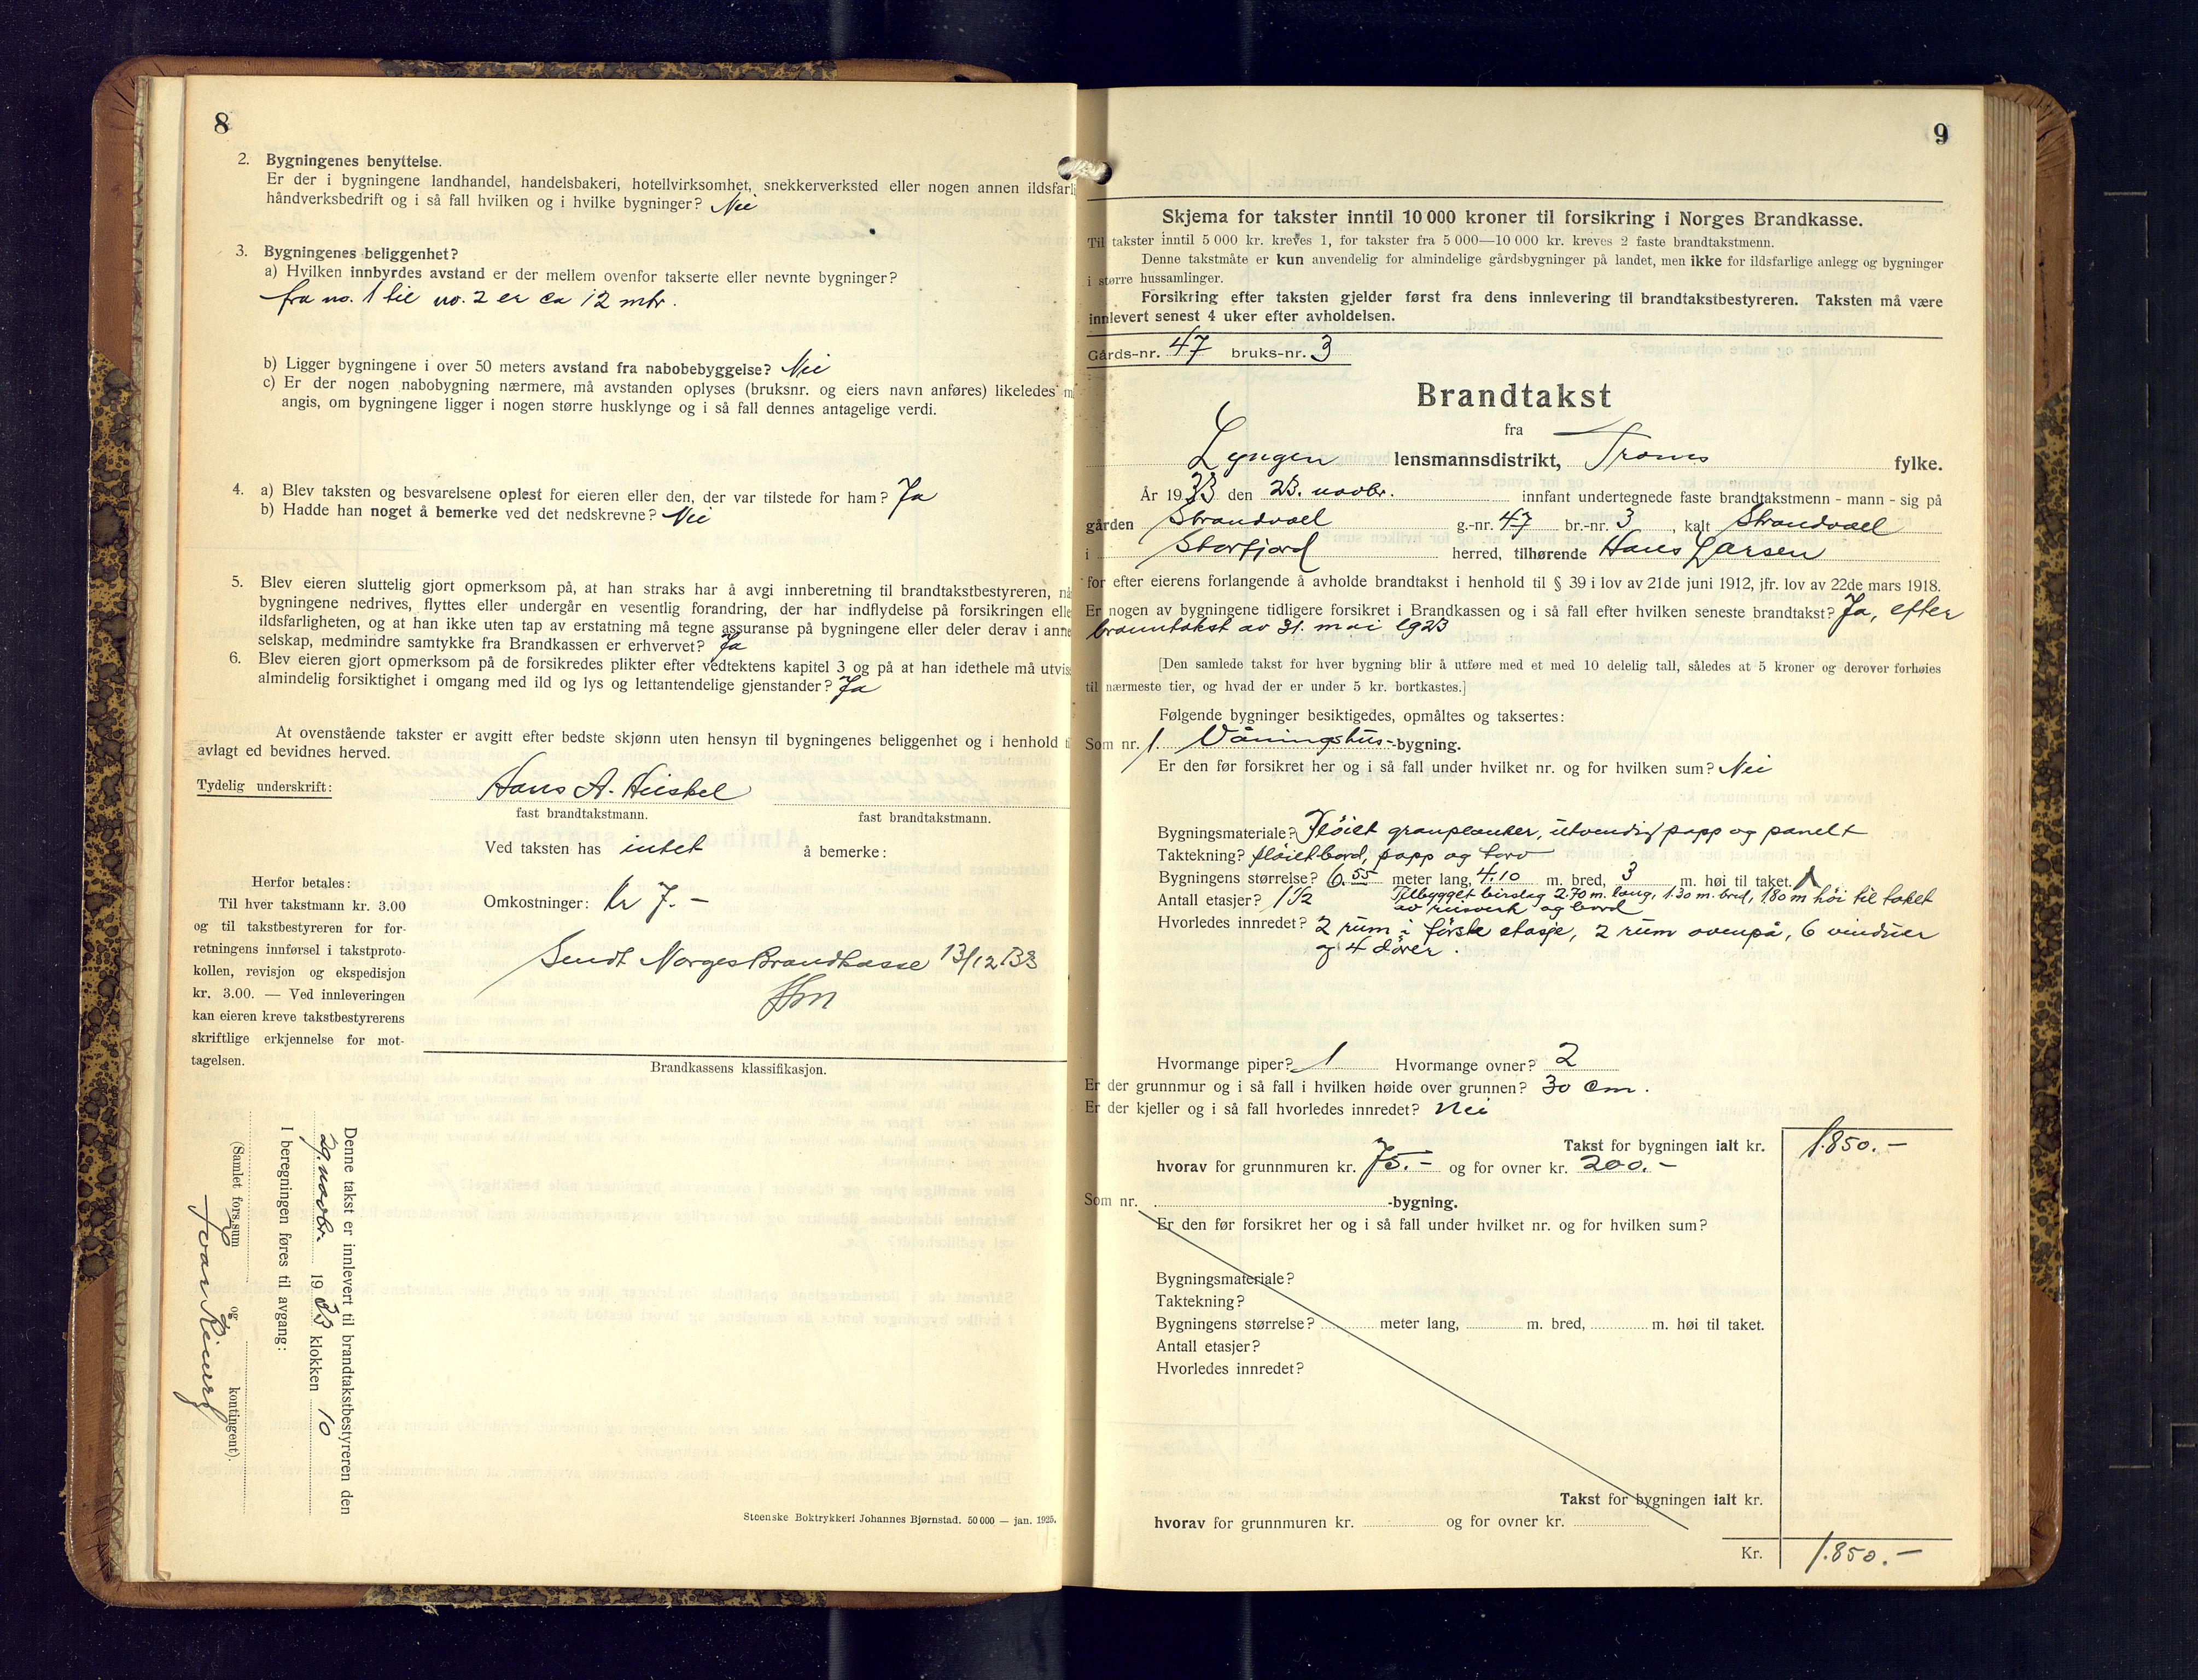 8
2. Bygningenes benyttelse.
Er der i bygningene landhandel, handelsbakeri, hotellvirksomhet, snekkerverksted eller nogen annen ildsfarl
håndverksbedrift og i så fall hvilken og i hvilke bygninger? Nei
3. Bygningenes beliggenhet?
a) Hvilken innbyrdes avstand er der mellem ovenfor takserte eller nevnte bygninger?
fra no. 1 til no. 2 er ca 12 mtr.
b) Ligger bygningene i over 50 meters avstand fra nabobebyggelse? Nei
c) Er der nogen nabobygning nærmere, må avstanden oplyses (bruksnr. og eiers navn anføres) likeledes m
angis, om bygningene ligger i nogen større husklynge og i så fall dennes antagelige verdi.
4. a) Blev taksten og besvarelsene oplest for eieren eller den, der var tilstede for ham? Ja
b) Hadde han noget å bemerke ved det nedskrevne? Nei
5. Blev eieren sluttelig gjort opmerksom på, at han straks har å avgi innberetning til brandtakstbestyreren, nå
bygningene nedrives, flyttes eller undergår en vesentlig forandring, der har indflydelse på forsikringen elle
ildsfarligheten, og at han ikke uten tap av erstatning må tegne assuranse på bygningene eller deler derav i anne
selskap, medmindre samtykke fra Brandkassen er erhvervet? Ja
6. Blev eieren gjort opmerksom på de forsikredes plikter efter vedtektens kapitel 3 og på at han idethele må utvis
almindelig forsiktighet i omgang med ild og lys og lettantendelige gjenstander? Ja
At ovenstående takster er avgitt efter bedste skjønn uten hensyn til bygningenes beliggenhet og i henhold t
avlagt ed bevidnes herved.
Tydelig underskrift: Hans A. Heiskel
fast brandtakstmann. fast brandtakstmann.
Ved taksten has intet å bemerke:
Herfor betales:
Til hver takstmann kr. 3.00
og til takstbestyreren for for-
retningens innførsel i takstproto-
kollen, revisjon og ekspedisjon
kr. 3.00. — Ved innleveringen
kan eieren kreve takstbestyrerens
skriftlige erkjennelse for mot-
tagelsen.
Omkostninger: Kr 7.-
Sendt Norges Brandkasse 13/12 33
Brandkassens klassifikasjon.
Denne takst er innlevert til brandtakstbestyreren den
29. novbr. 1933 klokken 10
I beregningen føres til avgang:
(Samlet fors.sum og kontingent).
Stoenske Boktrykkeri Johannes Bjørnstad. 50 000 — jan. 1925.
9
Skjema for takster inntil 10 000 kroner til forsikring i Norges Brandkasse.
Til takster inntil 5 000 kr. kreves 1, for takster fra 5 000—10 000 kr. kreves 2 faste brandtakstmenn.
Denne takstmåte er kun anvendelig for almindelige gårdsbygninger på landet, men ikke for ildsfarlige anlegg og bygninger
i større hussamlinger.
Forsikring efter taksten gjelder først fra dens innlevering til brandtakstbestyreren. Taksten må være
innlevert senest 4 uker efter avholdelsen.
Gårds-nr. 47 bruks-nr. 3
Brandtakst
fra
Lyngen lensmannsdistrikt, Troms fylke.
År 1933 den 23. novbr. innfant undertegnede faste brandtakstmenn - mann - sig på
gården Strandvoll g.-nr. 47 br.-nr. 3, kalt Strandvoll
i Storfjord herred, tilhørende Hans Larsen
for efter eierens forlangende å avholde brandtakst i henhold til § 39 i lov av 21de juni 1912, jfr. lov av 22de mars 1918.
Er nogen av bygningene tidligere forsikret i Brandkassen og i så fall efter hvilken seneste brandtakst? Ja, efter
branntakst av 31. mai 1923
[Den samlede takst for hver bygning blir å utføre med et med 10 delelig tall, således at 5 kroner og derover forhøies
til nærmeste tier, og hvad der er under 5 kr. bortkastes.]
Følgende bygninger besiktigedes, opmåltes og taksertes:
Som nr. 1. Våningshus-bygning.
Er den før forsikret her og i så fall under hvilket nr. og for hvilken sum? Nei
Bygningsmateriale? Pløiet granplanker, utvendig papp og panelt
Taktekning? pløiet bord, papp og torv
Bygningens størrelse? 6.55 meter lang, 4.10 m. bred, 3 m. høi til taket.
Antall etasjer? 1½ Tilbygget birslag 2.70 m. lang, 1.30 m. bred, 1.80 m høi til taket
av reisverk og bord
Hvorledes innredet? 2 rum i første etasje, 2 rum ovenpå, 6 vinduer
og 4 dører.
Hvormange piper? 1 Hvormange ovner? 2
Er der grunnmur og i så fall i hvilken høide over grunnen? 30 cm.
Er der kjeller og i så fall hvorledes innredet? Nei
Takst for bygningen ialt kr. 1.850.-
hvorav for grunnmuren kr. 75.- og for ovner kr. 200.-
Som nr. -bygning.
Er den før forsikret her og i så fall under hvilket nr. og for hvilken sum?
Bygningsmateriale?
Taktekning?
Bygningens størrelse? meter lang, m. bred, m. høi til taket.
Antall etasjer?
Hvorledes innredet?
Takst for bygningen ialt kr.
hvorav for grunnmuren kr. og for ovner kr.
Kr. 1.850.-